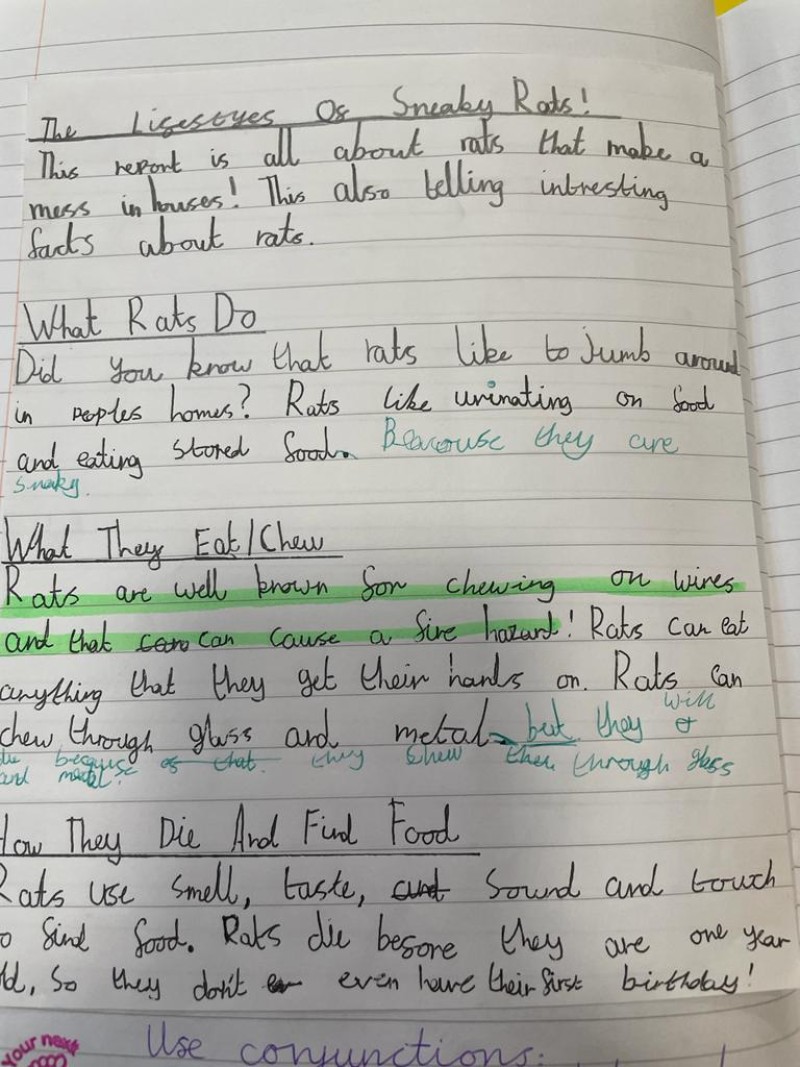 The Lifestyes Of Sneaky Rats!
This report is all about rats that make a
mess in houses! This also telling intresting
facts about rats.
What Rats Do
Did you know that rats like to jumb around
in peoples homes? Rats like urinating on food
and eating stored food. Beacouse they are
snaky.
What They Eat/Chew
Rats are well known for chewing on wires
and that can can cause a fire hazard! Rats can eat
anything that they get their hands on. Rats can
chew through glass and metal but they will
die because of that they chew through glass
and metal.
How They Die And Find Food
Rats use smell, taste, and sound and touch
to find food. Rats die before they are one year
old, so they don't even have their first birthday!
your next
Use conjunctions: